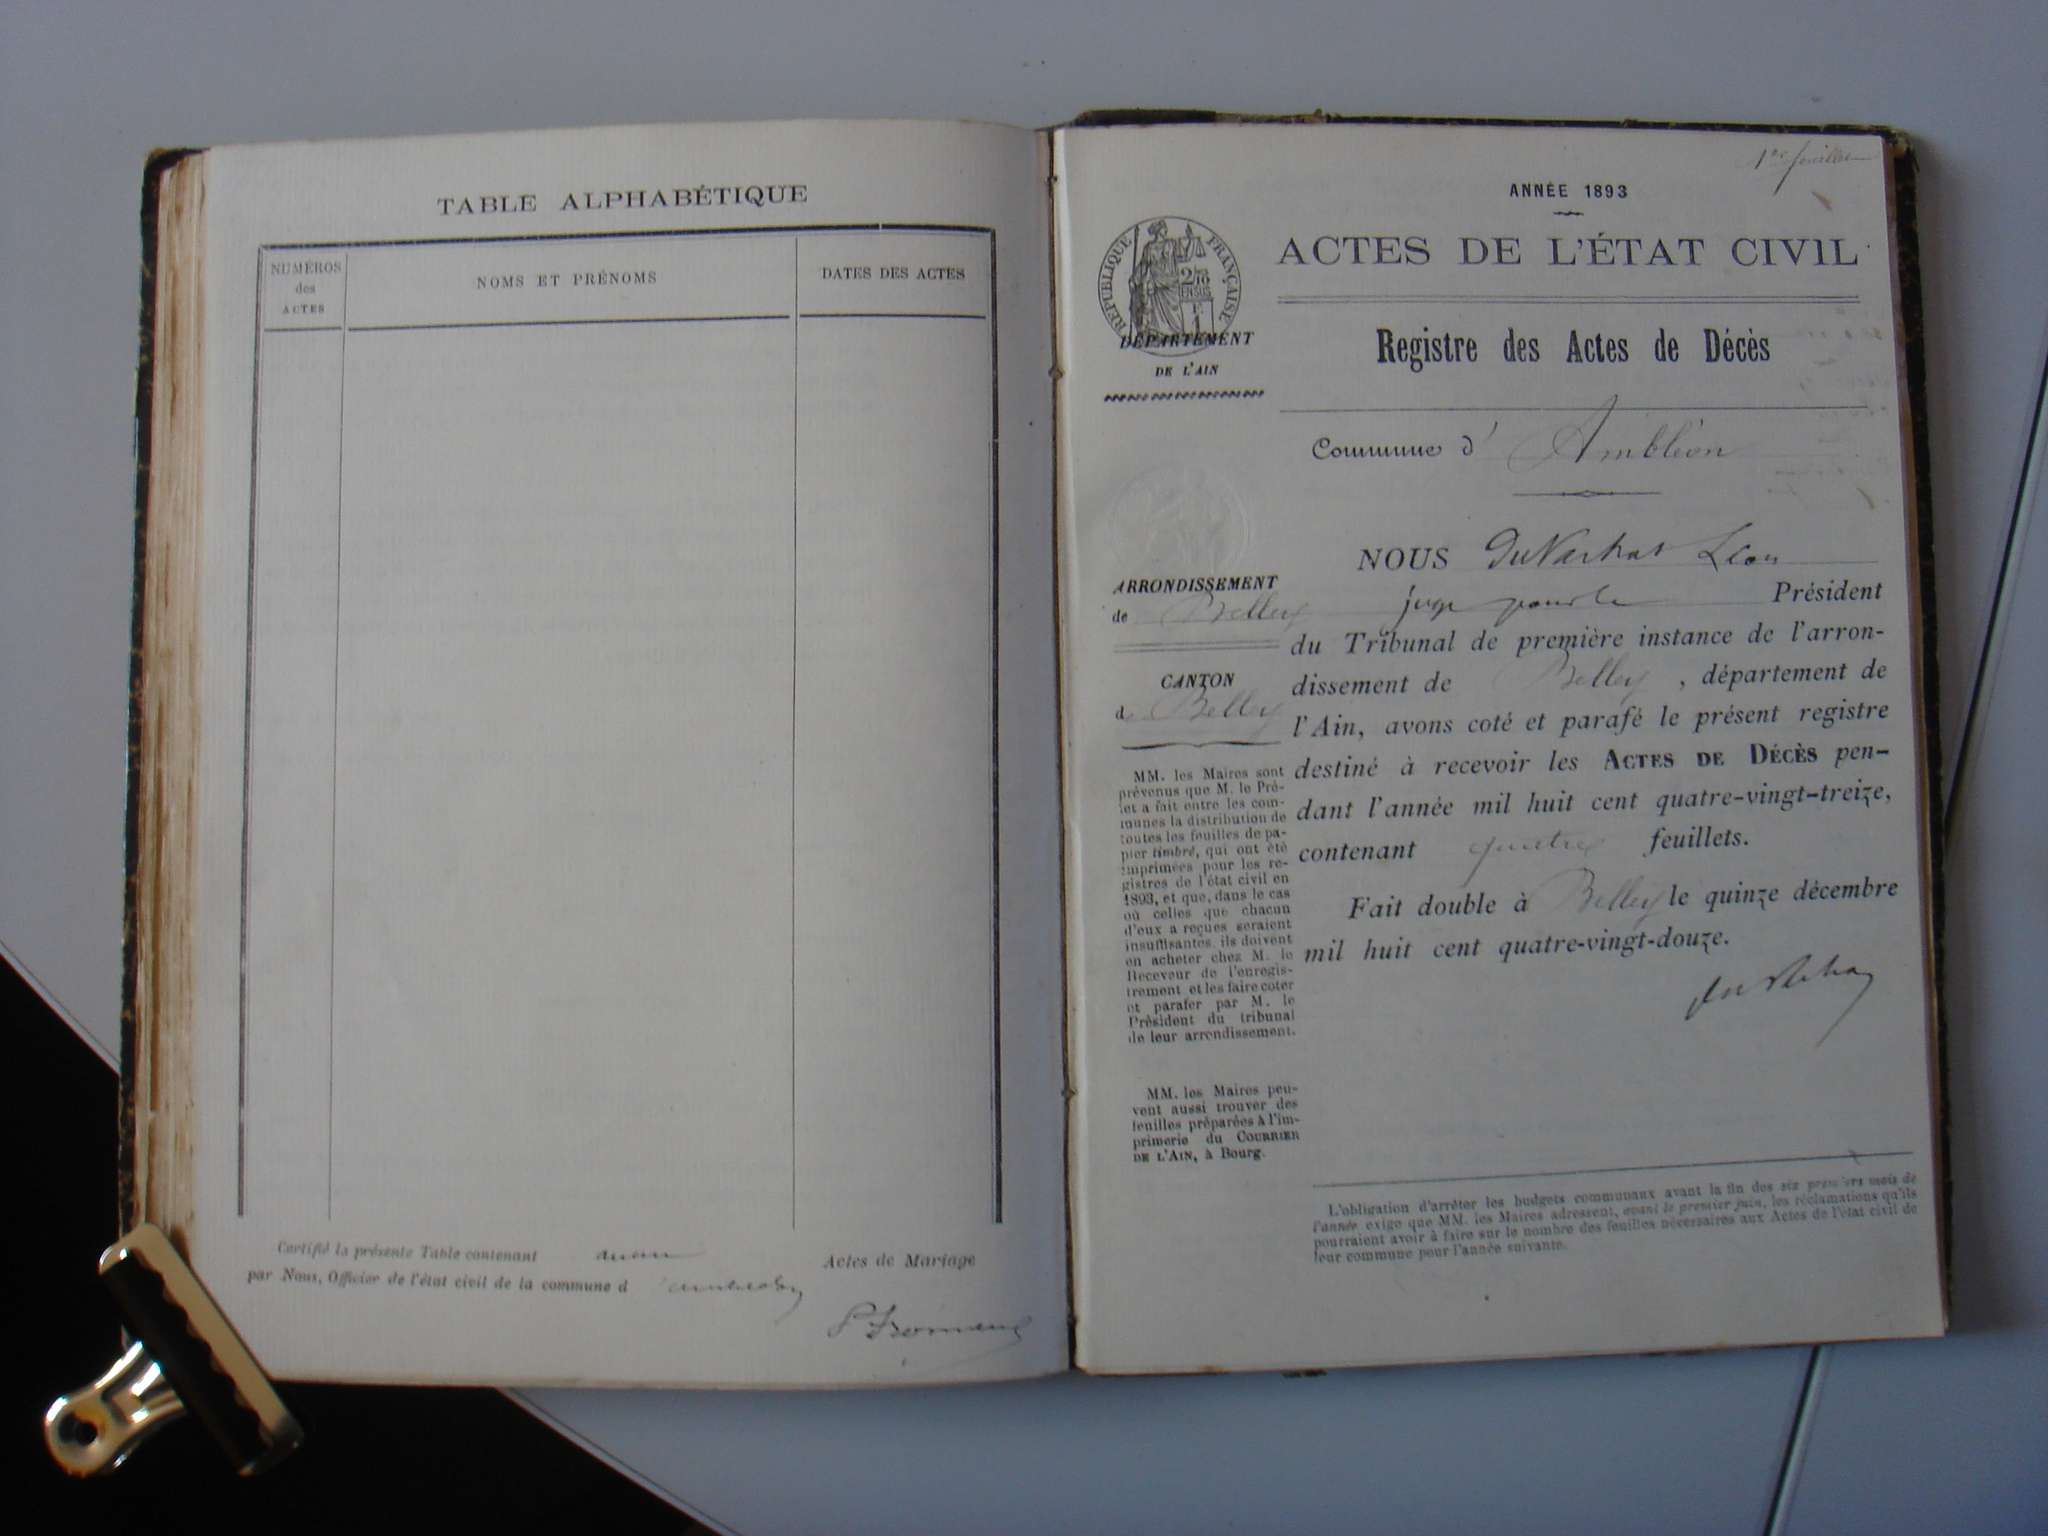 TABLE ALPHABÉTIQUE
NUMÉROS
des
ACTES
NOMS ET PRÉNOMS
DATES DES ACTES
Certifié la présente Table contenant aucun Actes de Mariage
par Nous, Officier de l'état civil de la commune d
1er feuillet
ANNÉE 1893
ACTES DE L'ÉTAT CIVIL
RÉPUBLIQUE FRANÇAISE
DÉPARTEMENT
DE L'AIN
Registre des Actes de Décès
Commune d' Ambléon
ARRONDISSEMENT
de Belley
CANTON
d Belley
MM. les Maires sont
prévenus que M. le Pré-
fet a fait entre les com-
munes la distribution de
toutes les feuilles de pa-
pier timbré, qui ont été
imprimées pour les re-
gistres de l'état civil en
1893, et que, dans le cas
où celles que chacun
d'eux a reçues seraient
insuffisantes, ils doivent
en acheter chez M. le
Receveur de l'enregis-
trement et les faire coter
et parafer par M. le
Président du tribunal
de leur arrondissement.
MM. les Maires peu-
vent aussi trouver des
feuilles préparées à l'im-
primerie du COURRIER
DE L'AIN, à Bourg.
NOUS Léon
juge pour le Président
du Tribunal de première instance de l'arron-
dissement de Belley, département de
l'Ain, avons coté et parafé le présent registre
destiné à recevoir les ACTES DE DÉCÈS pen-
dant l'année mil huit cent quatre-vingt-treize,
contenant quatre feuillets.
Fait double à Belley le quinze décembre
mil huit cent quatre-vingt-douze.
L'obligation d'arrêter les budgets communaux avant la fin des six premiers mois de
l'année exige que MM. les Maires adressent, avant le premier juin, les réclamations qu'ils
pourraient avoir à faire sur le nombre des feuilles nécessaires aux Actes de l'état civil de
leur commune pour l'année suivante.